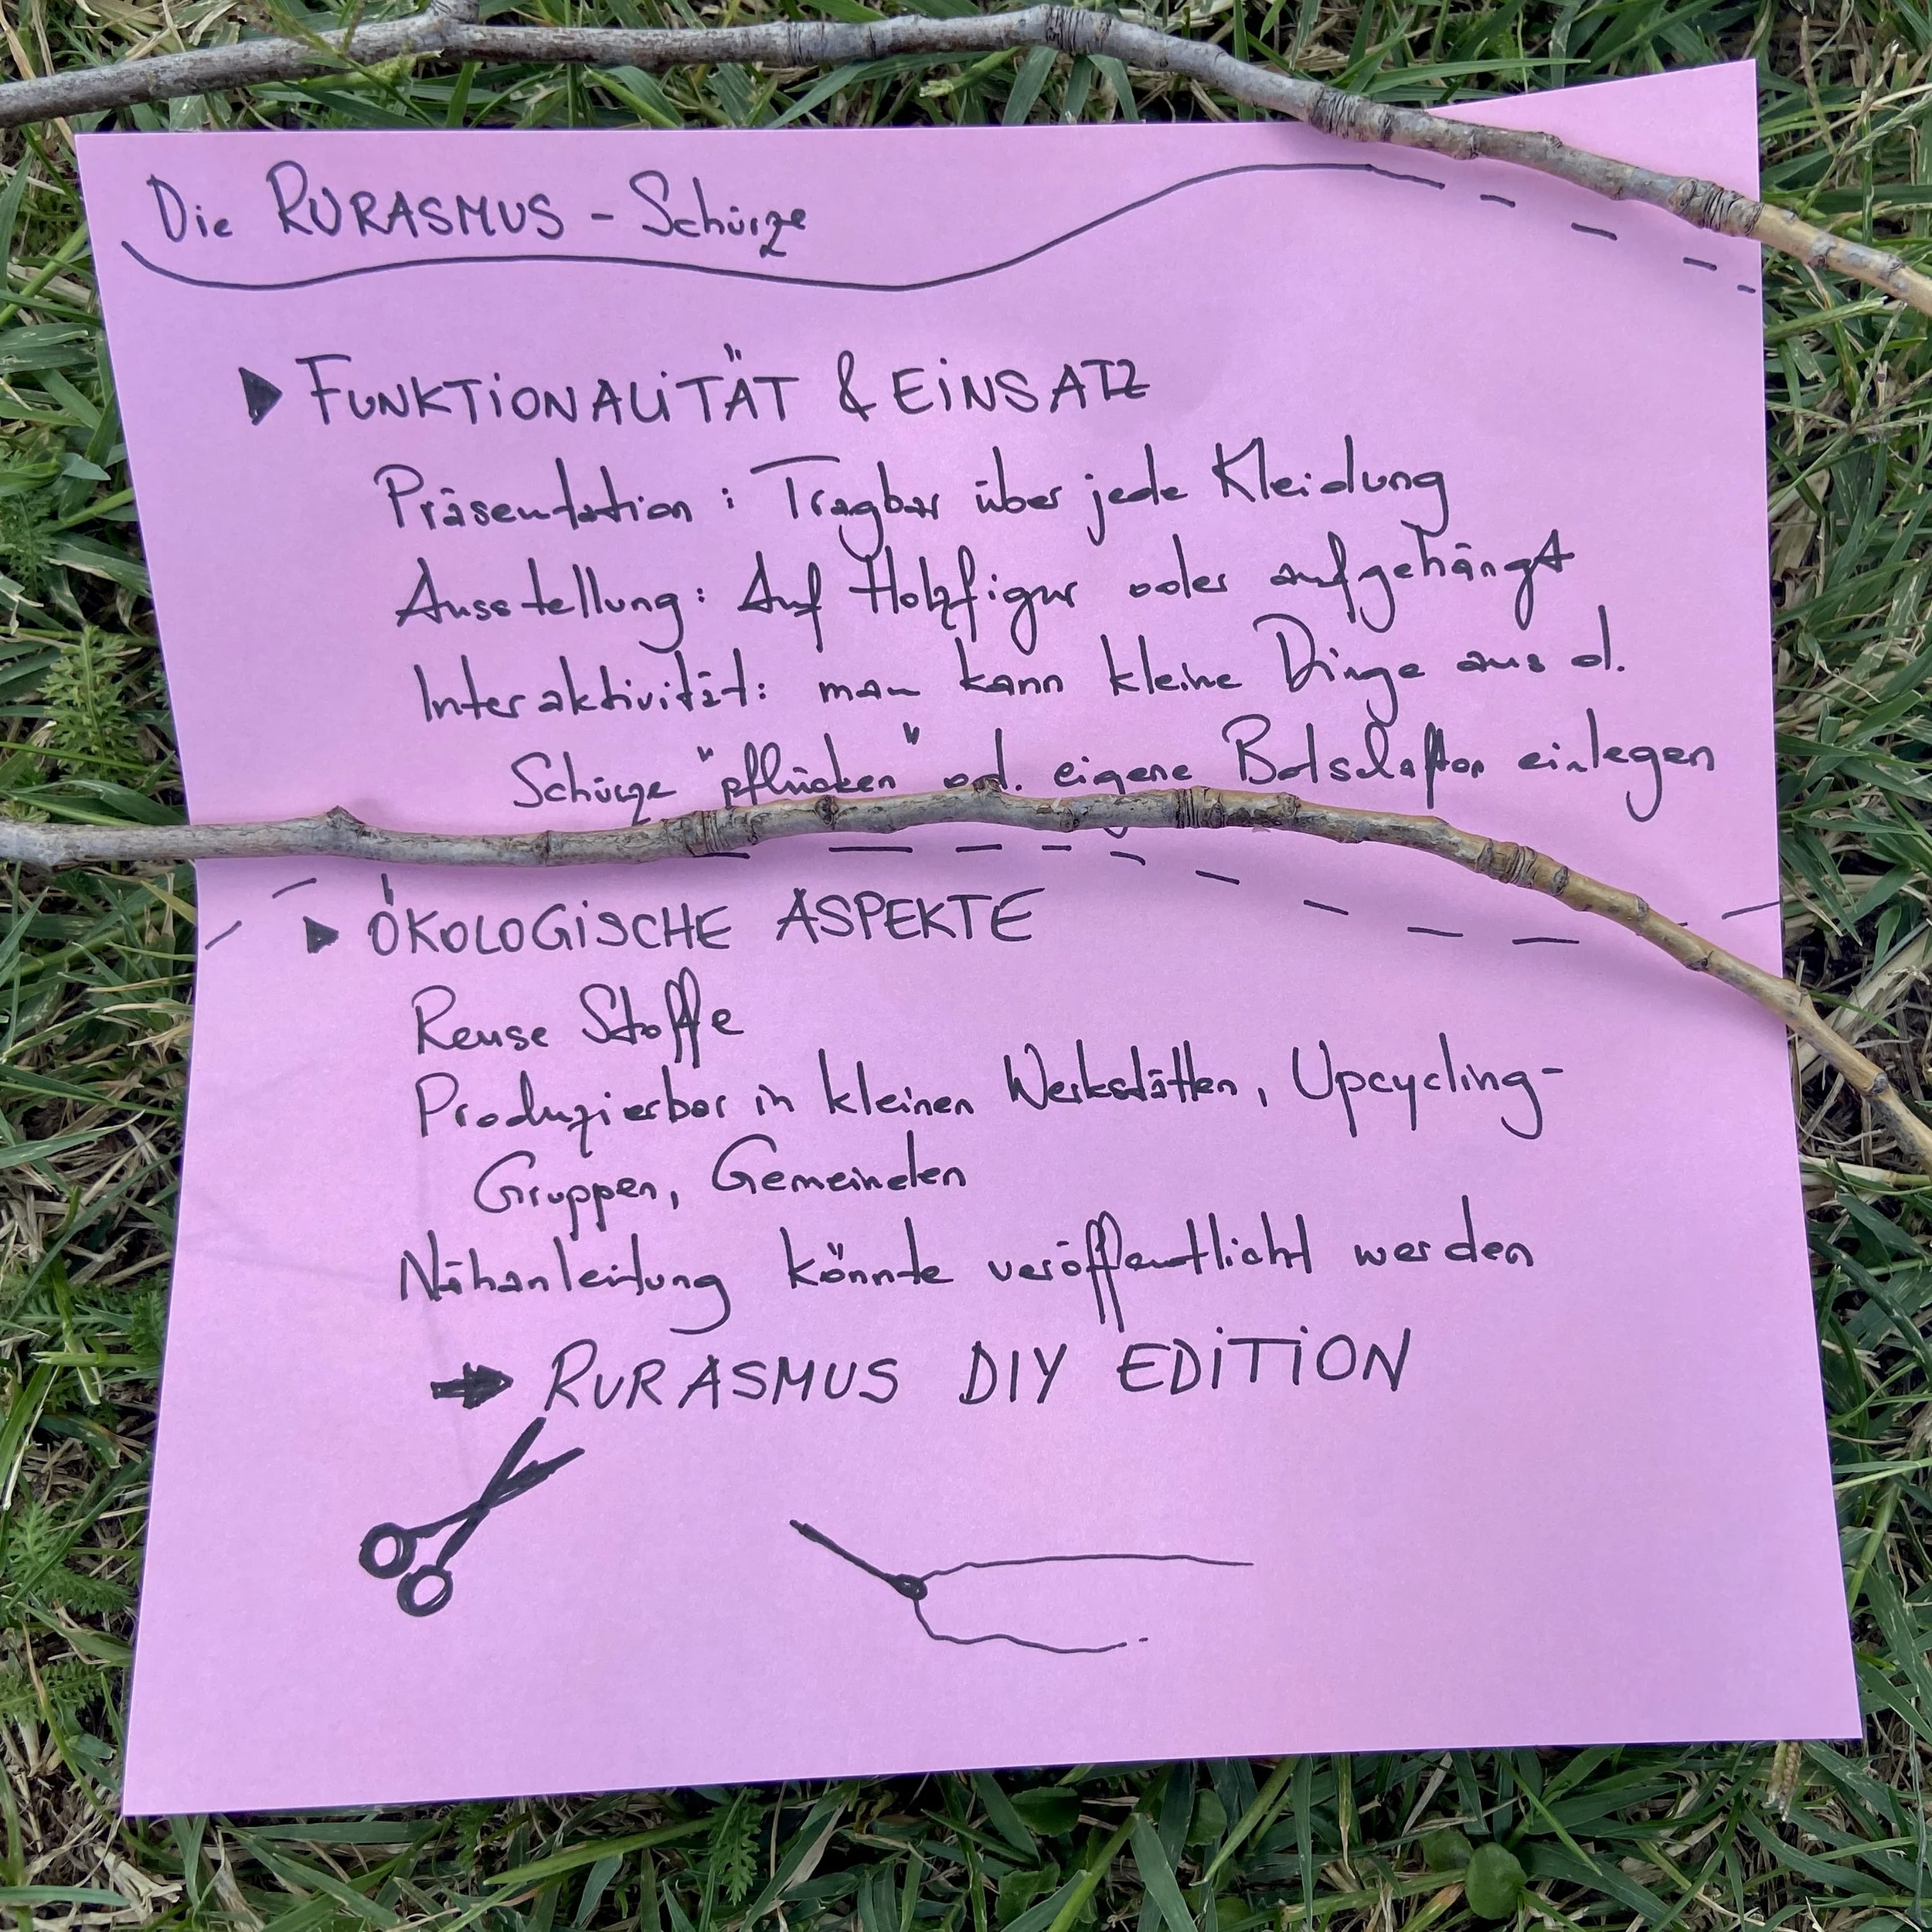 Die RURASMUS - Schürze
FUNKTiONALiTÄT & EiNSATZ
Präsentation: Tragbar über jede Kleidung
Ausstellung: Auf Holzfigur oder aufgehängt
Interaktivität: man kann kleine Dinge aus d.
Schürze "pflücken" od. eigene Botschaften einlegen
ÖKOLOGiSCHE ASPEKTE
Reuse Stoffe
Produzierbar in kleinen Werkstätten, Upcycling-
Gruppen, Gemeinden
Nähanleitung könnte veröffentlicht werden
RURASMUS DIY EDiTiON